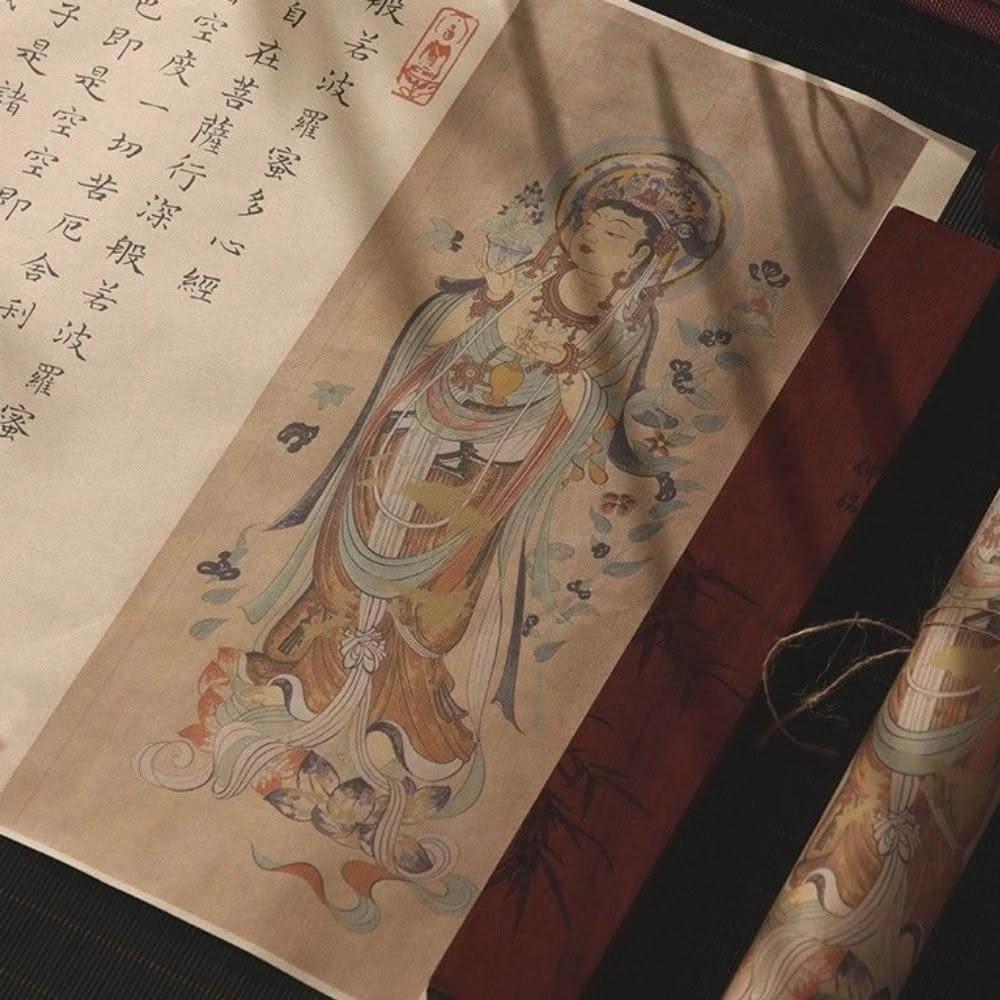 般若波羅蜜多心經
自在菩薩行深般若波羅蜜
空度一切苦厄舍利
色即是空空即
子是諸